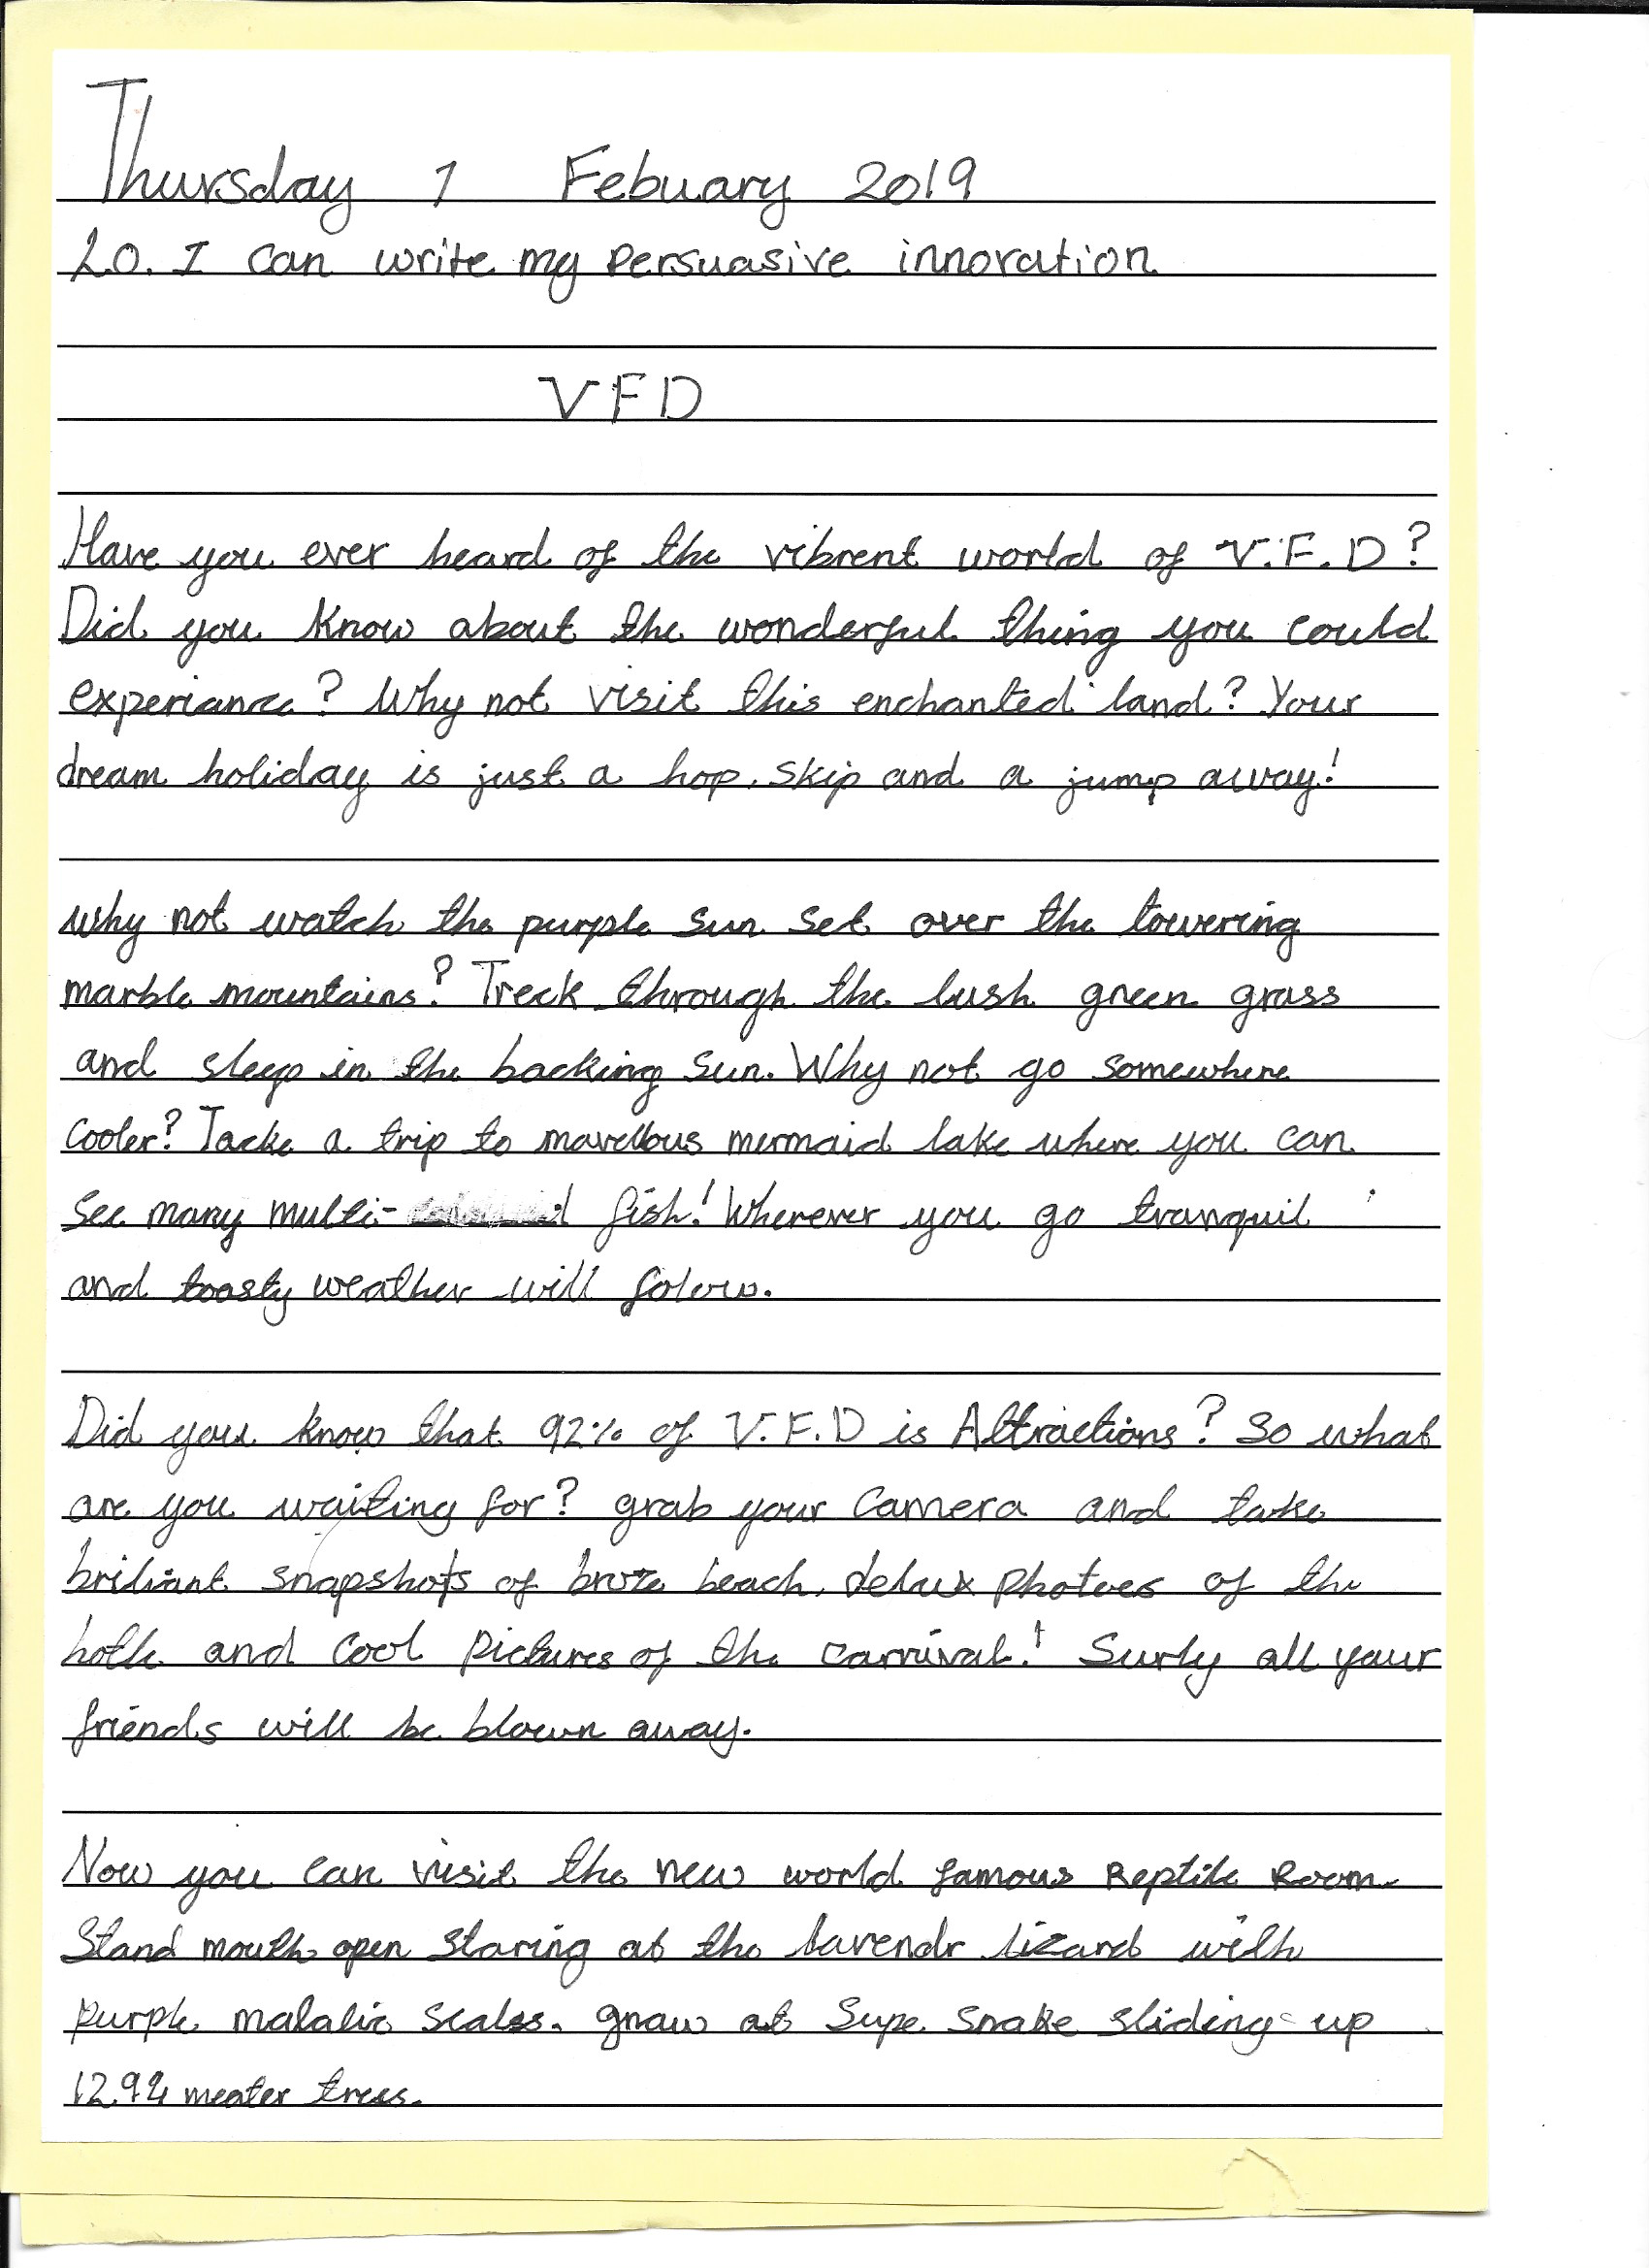 Thursday 1 Febuary 2019
L.O. I can write my persuasive innovation
VFD
Have you ever heard of the vibrent world of V.F.D?
Did you know about the wonderful thing you could
experiance? Why not visit this enchanted land? Your
dream holiday is just a hop, skip and a jump away!
Why not watch the purple sun set over the towering
marble mountains? Treck through the lush green grass
and sleep in the backing sun. Why not go somewhere
cooler? Tacke a trip to mavellous mermaid lake where you can
see many multi- fish! Wherever you go tranquil
and toasty weather will folow.
Did you know that 92% of V.F.D is Attractions? So what
are you waiting for? grab your camera and take
briliant snapshots of beach, delux photoes of the
and cool pictures of the carnival! Surly all your
friends will be blown away.
Now you can visit the new world famous Reptile Room.
Stand mouth open staring at the lavendr lizard with
purple malalic scales. gnaw at Supe snake sliding up
12.94 meater trees.